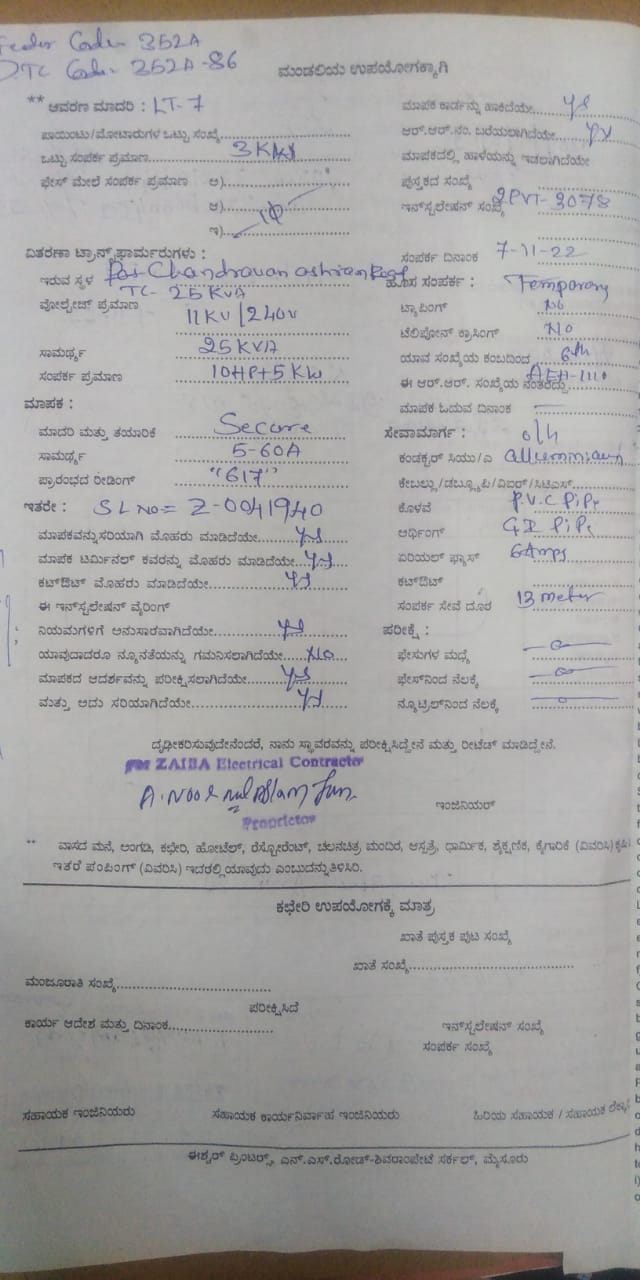 Feeder Code 352A
DTC Code 352A-86
ಮಂಡಲಿಯ ಉಪಯೋಗಕ್ಕಾಗಿ
** ಆವರಣ ಮಾದರಿ : LT-7
ಪಾಯಿಂಟು/ಮೋಟಾರುಗಳ ಒಟ್ಟು ಸಂಖ್ಯೆ
ಒಟ್ಟು ಸಂಪರ್ಕ ಪ್ರಮಾಣ 3KW
ಫೇಸ್ ಮೇಲೆ ಸಂಪರ್ಕ ಪ್ರಮಾಣ ಅ)
ಆ)
ಇ)
ವಿತರಣಾ ಟ್ರಾನ್ಸ್‌ಫಾರ್ಮರುಗಳು :
ಇರುವ ಸ್ಥಳ
TC- 25 KVA
ವೋಲ್ಟೇಜ್ ಪ್ರಮಾಣ 11KV/240V
ಸಾಮರ್ಥ್ಯ 25KVA
ಸಂಪರ್ಕ ಪ್ರಮಾಣ 10HP+5KW
ಮಾಪಕ :
ಮಾದರಿ ಮತ್ತು ತಯಾರಿಕೆ Secure
ಸಾಮರ್ಥ್ಯ 5-60A
ಪ್ರಾರಂಭದ ರೀಡಿಂಗ್ "617"
ಇತರೇ : SL No= Z-0041940
ಮಾಪಕವನ್ನು ಸರಿಯಾಗಿ ಮೊಹರು ಮಾಡಿದೆಯೇ ys
ಮಾಪಕ ಟರ್ಮಿನಲ್ ಕವರನ್ನು ಮೊಹರು ಮಾಡಿದೆಯೇ ys
ಕಟ್‌ಔಟ್ ಮೊಹರು ಮಾಡಿದೆಯೇ ys
ಈ ಇನ್‌ಸ್ಟಲೇಷನ್ ವೈರಿಂಗ್
ನಿಯಮಗಳಿಗೆ ಅನುಸಾರವಾಗಿದೆಯೇ ys
ಯಾವುದಾದರೂ ನ್ಯೂನತೆಯನ್ನು ಗಮನಿಸಲಾಗಿದೆಯೇ No
ಮಾಪಕದ ಆದರ್ಶವನ್ನು ಪರೀಕ್ಷಿಸಲಾಗಿದೆಯೇ ys
ಮತ್ತು ಅದು ಸರಿಯಾಗಿದೆಯೇ ys
ಮಾಪಕ ಕಾರ್ಡನ್ನು ಹಾಕಿದೆಯೇ ys
ಆರ್.ಆರ್.ನಂ. ಬರೆಯಲಾಗಿದೆಯೇ ys
ಮಾಪಕದಲ್ಲಿ ಹಾಳೆಯನ್ನು ಇಡಲಾಗಿದೆಯೇ
ಪುಸ್ತಕದ ಸಂಖ್ಯೆ
ಇನ್‌ಸ್ಟಲೇಷನ್ ಸಂಖ್ಯೆ
ಸಂಪರ್ಕ ದಿನಾಂಕ 7-11-22
ಹೊಸ ಸಂಪರ್ಕ : Temporary
ಟ್ಯಾಪಿಂಗ್ No
ಟೆಲಿಫೋನ್ ಕ್ರಾಸಿಂಗ್ No
ಯಾವ ಸಂಖ್ಯೆಯ ಕಂಬದಿಂದ 6th
ಈ ಆರ್.ಆರ್. ಸಂಖ್ಯೆಯ ನಂತರದ್ದು AEH-1110
ಮಾಪಕ ಓದುವ ದಿನಾಂಕ
ಸೇವಾಮಾರ್ಗ : o/h
ಕಂಡಕ್ಟರ್ ಸಿಯು/ಎ
ಕೇಬಲ್ಲು/ಡಬ್ಲ್ಯೂಪಿ/ವಿಐಆರ್/ಸಿಟಿಎಸ್
ಕೊಳವೆ P.V.C Pipe
ಅರ್ಥಿಂಗ್ G.I Pipe
ಏರಿಯಲ್ ಫ್ಯೂಸ್ 6Amps
ಕಟ್‌ಔಟ್
ಸಂಪರ್ಕ ಸೇವೆ ದೂರ 13 meter
ಪರೀಕ್ಷೆ :
ಫೇಸುಗಳ ಮಧ್ಯೆ
ಫೇಸ್‌ನಿಂದ ನೆಲಕ್ಕೆ
ನ್ಯೂಟ್ರಲ್‌ನಿಂದ ನೆಲಕ್ಕೆ
ದೃಢೀಕರಿಸುವುದೇನೆಂದರೆ, ನಾನು ಸ್ಥಾವರವನ್ನು ಪರೀಕ್ಷಿಸಿದ್ದೇನೆ ಮತ್ತು ರೀಟೆಡ್ ಮಾಡಿದ್ದೇನೆ.
For ZAIBA Electrical Contractor
Proprietor
ಇಂಜಿನಿಯರ್
** ವಾಸದ ಮನೆ, ಅಂಗಡಿ, ಕಛೇರಿ, ಹೋಟೆಲ್, ರೆಸ್ಟೋರೆಂಟ್, ಚಲನಚಿತ್ರ ಮಂದಿರ, ಆಸ್ಪತ್ರೆ, ಧಾರ್ಮಿಕ, ಶೈಕ್ಷಣಿಕ, ಕೈಗಾರಿಕೆ (ವಿವರಿಸಿ) ಕೃಷಿ
ಇತರೆ ಪಂಪಿಂಗ್ (ವಿವರಿಸಿ) ಇದರಲ್ಲಿ ಯಾವುದು ಎಂಬುದನ್ನು ತಿಳಿಸಿರಿ.
ಕಛೇರಿ ಉಪಯೋಗಕ್ಕೆ ಮಾತ್ರ
ಖಾತೆ ಪುಸ್ತಕ ಪುಟ ಸಂಖ್ಯೆ
ಖಾತೆ ಸಂಖ್ಯೆ
ಮಂಜೂರಾತಿ ಸಂಖ್ಯೆ
ಪರೀಕ್ಷಿಸಿದೆ
ಕಾರ್ಯ ಆದೇಶ ಮತ್ತು ದಿನಾಂಕ
ಇನ್‌ಸ್ಟಲೇಷನ್ ಸಂಖ್ಯೆ
ಸಂಪರ್ಕ ಸಂಖ್ಯೆ
ಸಹಾಯಕ ಇಂಜಿನಿಯರು
ಸಹಾಯಕ ಕಾರ್ಯನಿರ್ವಾಹ ಇಂಜಿನಿಯರು
ಹಿರಿಯ ಸಹಾಯಕ / ಸಹಾಯಕ
ಈಶ್ವರ್ ಪ್ರಿಂಟರ್ಸ್, ಎನ್.ಎಸ್.ರೋಡ್-ಶಿವರಾಂಪೇಟೆ ಸರ್ಕಲ್, ಮೈಸೂರು